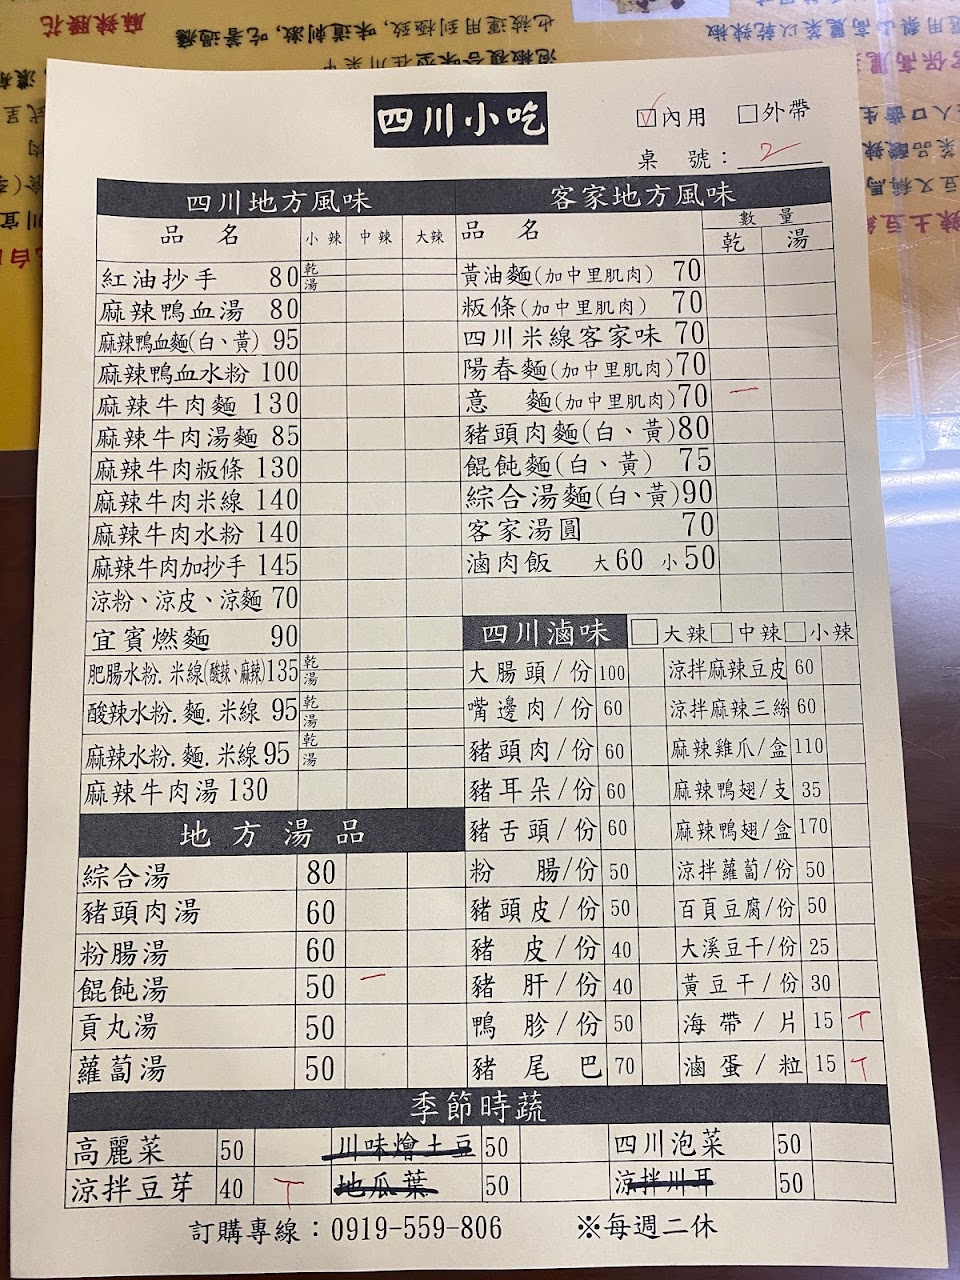 四川小吃
☑內用 □外帶
桌 號：2
四川地方風味
品 名 小辣 中辣 大辣
紅油抄手 80 乾 湯
麻辣鴨血湯 80
麻辣鴨血麵(白、黃) 95
麻辣鴨血水粉 100
麻辣牛肉麵 130
麻辣牛肉湯麵 85
麻辣牛肉粄條 130
麻辣牛肉米線 140
麻辣牛肉水粉 140
麻辣牛肉加抄手 145
涼粉、涼皮、涼麵 70
宜賓燃麵 90
肥腸水粉.米線(酸辣、麻辣)135 乾 湯
酸辣水粉.麵.米線 95 乾 湯
麻辣水粉.麵.米線 95 乾 湯
麻辣牛肉湯 130
地方湯品
綜合湯 80
豬頭肉湯 60
粉腸湯 60
餛飩湯 50 一
貢丸湯 50
蘿蔔湯 50
客家地方風味
品 名 數量 乾 湯
黃油麵(加中里肌肉) 70
粄條(加中里肌肉) 70
四川米線客家味 70
陽春麵(加中里肌肉)70
意 麵(加中里肌肉)70 一
豬頭肉麵(白、黃)80
餛飩麵(白、黃) 75
綜合湯麵(白、黃)90
客家湯圓 70
滷肉飯 大60 小50
四川滷味 □大辣□中辣□小辣
大腸頭/份 100 涼拌麻辣豆皮 60
嘴邊肉/份 60 涼拌麻辣三絲 60
豬頭肉/份 60 麻辣雞爪/盒 110
豬耳朵/份 60 麻辣鴨翅/支 35
豬舌頭/份 60 麻辣鴨翅/盒 170
粉 腸/份 50 涼拌蘿蔔/份 50
豬頭皮/份 50 百頁豆腐/份 50
豬 皮/份 40 大溪豆干/份 25
豬 肝/份 40 黃豆干/份 30
鴨 胗/份 50 海帶/片 15 丅
豬 尾 巴 70 滷蛋/粒 15 丅
季節時蔬
高麗菜 50 川味燴土豆 50 四川泡菜 50
涼拌豆芽 40 丅 地瓜葉 50 涼拌川耳 50
訂購專線：0919-559-806 ※每週二休